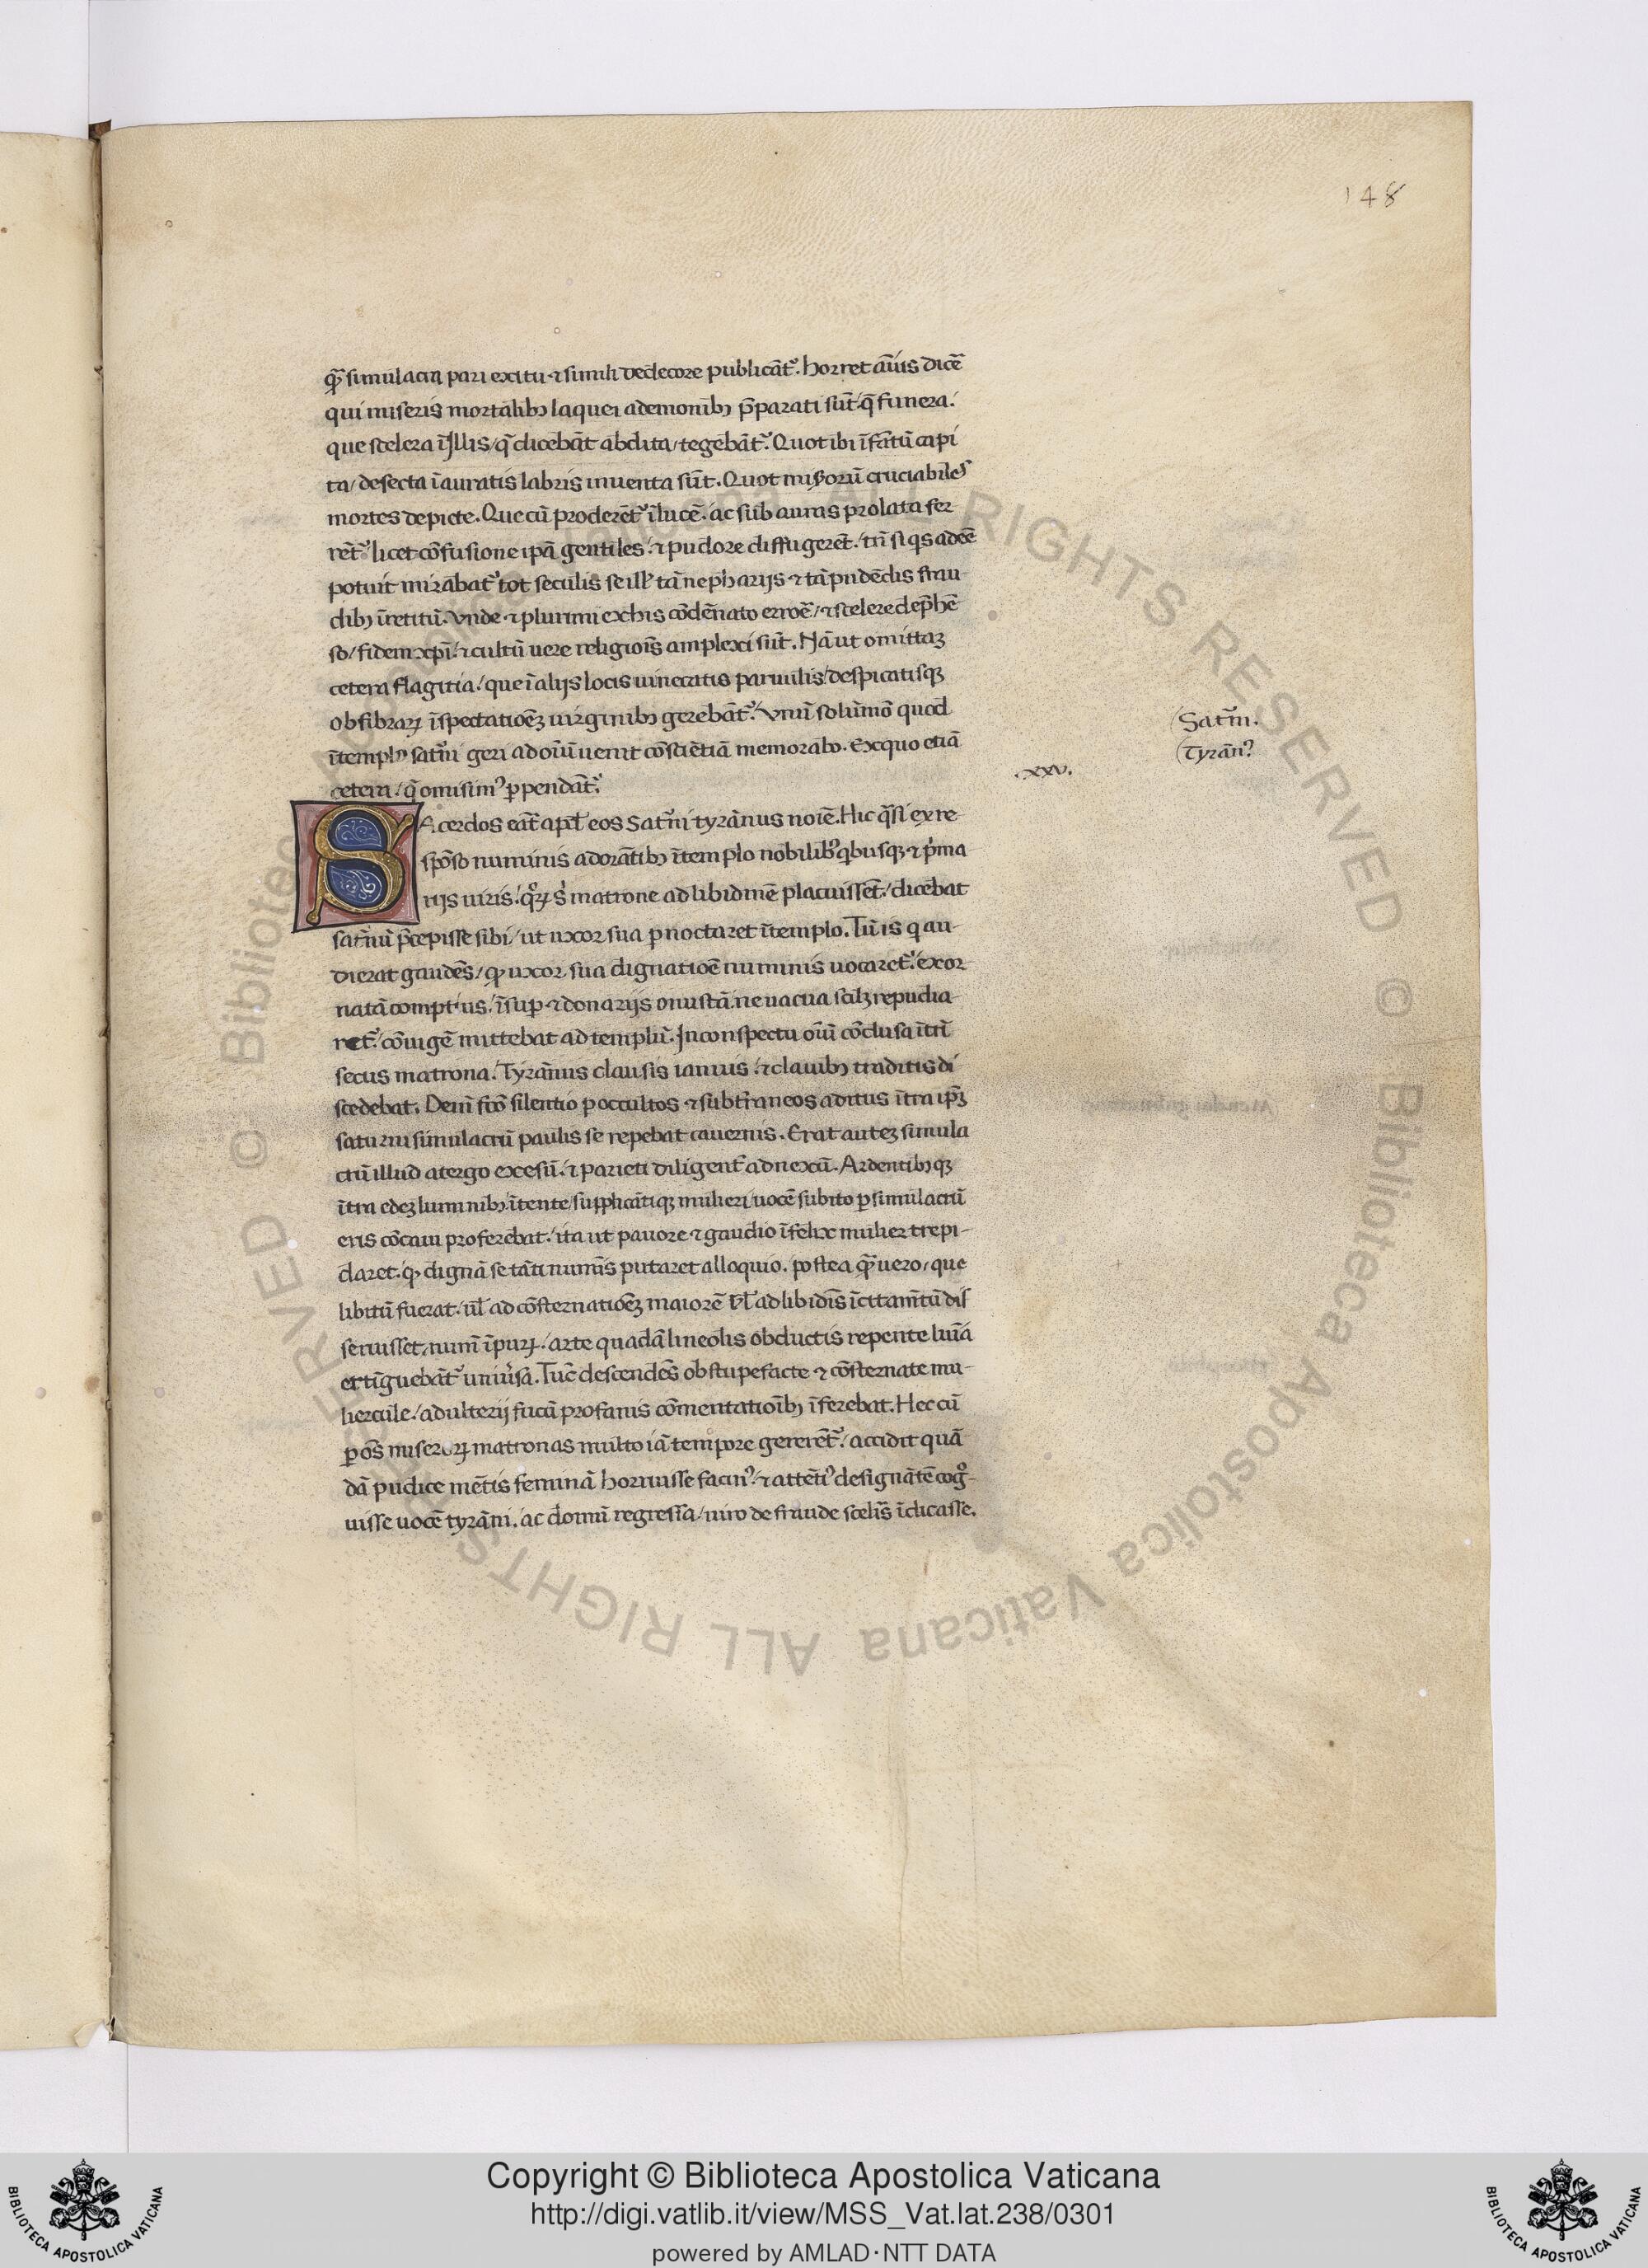 148
q̄ simulacra pari exitu ⁊ simili dedecore publicāt᷒. horret aīus dicē
qui miseris mortalibꝫ laquei ademonibꝫ p̄parati sūt. q̄ funera.
que scelera īillis/ q̄ dicebāt abdita/ tegebāt᷒. Quot ibi īfātū capi
ta/ desecta īauratis labris inuenta sūt. Quot misorū cruciabiles
mortes depicte. Que cū proderēt᷒ īlucē. ac sub auras prolata fer
rēt᷒. licet cōfusione ipā gentiles. ⁊ pudore diffugerēt. tn̄ si qs adeē
potuit mirabat᷒ tot seculis se ill' tā nepharijs ⁊ tā pudēdis frau
dibꝫ īretitū. Vnde ⁊ plurimi exhis cōdēnato erroē/ ⁊ scelere dep̄hē
so/ fidem xp̄i. ⁊ cultū uere religiōis amplexi sūt. Nā ut omittaꝫ
cetera flagitia/ que ī alijs locis uinecatis paruulis/ despicatisqꝫ
ob fibraꝝ īspectatiōeꝫ uirginibꝫ gerebāt᷒. Vnū solūmō quod
ītemplo sat᷒ni geri ad oīū uenit cōsciētiā memorabo. Exquo etiā
cetera/ q̄ omisim᷒ ꝑpendāt᷒.
SAcerdos eāt apd̄ eos Sat᷒ni tyrānus noīe. Hic q̄si ex re
spōso numinis adorātibꝫ ītemplo nobilibꝫ qbusqꝫ ⁊ p̄ma
rijs uiris. qᷓꝝ s matrone ad libidinē placuissēt/ dicebat
sat᷒nū p̄cepisse sibi/ ut uxor sua ꝑnoctaret ītemplo. Tū is q au-
dierat gaudēs/ ꝙ uxor sua dignatiōe numinis uocaret᷒. exor
natā comptius. īsuꝑ ⁊ donarijs onustā. ne uacua scilꝫ repudia
ret᷒. cōiugē mittebat ad templū. Inconspectu oīū cōclusa ītrī
secus matrona. Tyrānus clausis ianuis. ⁊ clauibꝫ traditis di
scedebat. Deīn fcō silentio ꝑ occultos ⁊ subt̄raneos aditus ītra ip̄ꝫ
saturni simulacrū patulis se repebat cauernis. Erat auteꝫ simula
crū illud atergo excsū. ⁊ parieti diligent᷒ adnexū. Ardentibꝫqꝫ
ītra edeꝫ luminibꝫ. ītente/ supplicātiqꝫ mulieri/ uocē subito ꝑ simulacrū
eris cōcaui proferebat. ita ut pauore ⁊ gaudio īfelix mulier trepi-
daret. ꝙ dignā se tāti numīs putaret alloquio. postea q̄ uero/ que
libitū fuerat. ul̄ ad cōsternatiōeꝫ maiorē ul̄ ad libidīs īcitamtū dis
seruisset. numē īpurꝝ. arte quadā lineolis obductis repente lumīa
extīguebāt᷒ uniūsa. Tūc descendēs obstupefacte ⁊ cōsternate mu-
liercule/ adulterij fucū profanis cōmentatiōibꝫ īferebat. Hec cū
ꝑ oēs miseroꝝ matronas multo iā tempore gererēt᷒/ accidit quā
dā pudice mētis feminā horruisse facin᷒. ⁊ attēti᷒ designātē cogͦ-
uisse uocē tyrāni. ac domū regressa/ uiro de fraude scelīs īdicasse.
.xxv.
Sat᷒n.
Tyrān᷒
Copyright © Biblioteca Apostolica Vaticana
http://digi.vatlib.it/view/MSS_Vat.lat.238/0301
powered by AMLAD·NTT DATA
BIBLIOTECA APOSTOLICA VATICANA
BIBLIOTECA APOSTOLICA VATICANA
© Biblioteca Apostolica Vaticana ALL RIGHTS RESERVED © Biblioteca Apostolica Vaticana ALL RIGHTS RESERVED